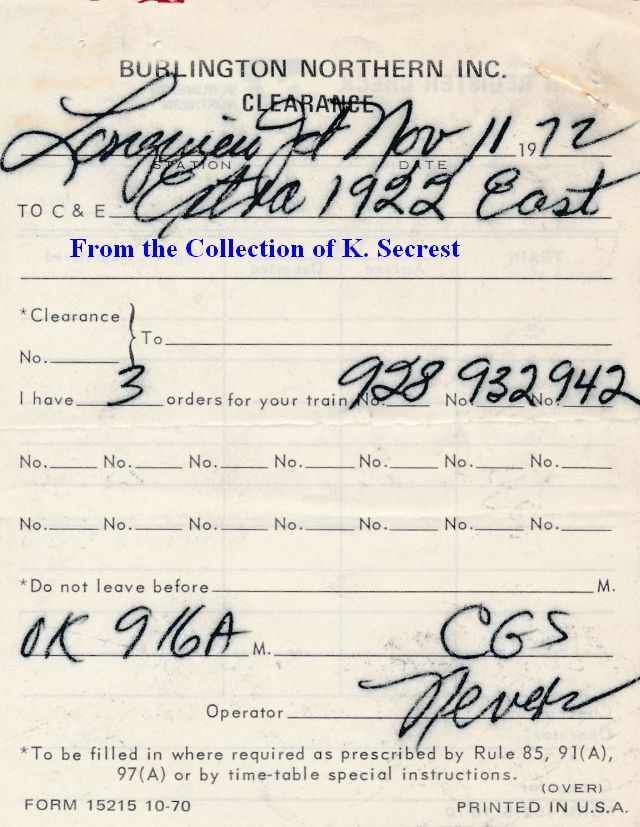 BURLINGTON NORTHERN INC.
CLEARANCE
Longview Jct Nov 11 1972
STATION DATE
TO C & E Extra 1922 East
From the Collection of K. Secrest
*Clearance
No. To
I have 3 orders for your train No. 928 No. 932 No. 942
No. No. No. No. No. No. No.
No. No. No. No. No. No. No.
*Do not leave before M.
OK 916A M. CGS
Operator
*To be filled in where required as prescribed by Rule 85, 91(A),
97(A) or by time-table special instructions.
(OVER)
FORM 15215 10-70 PRINTED IN U.S.A.